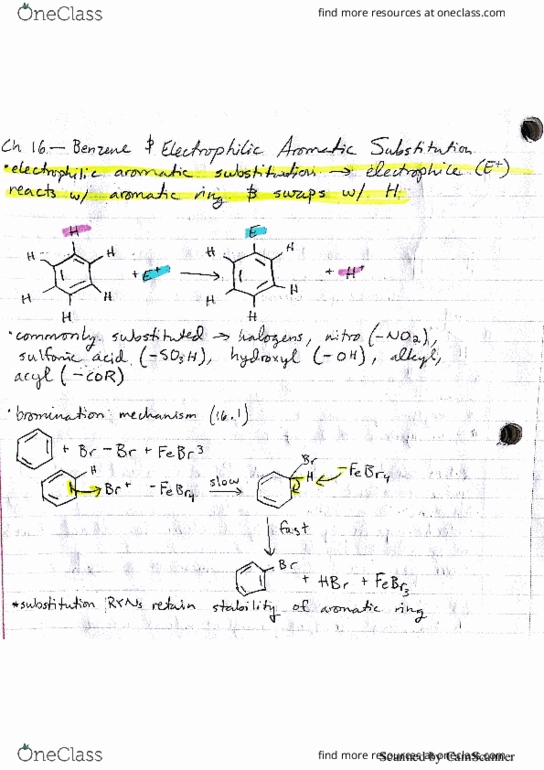 OneClass
find more resources at oneclass.com
Ch 16. — Benzene & Electrophilic Aromatic Substitution
• electrophilic aromatic substitution → electrophile (E+)
reacts w/ aromatic ring & swaps w/ H.
H
E
H H
H H
+ E+ → + H+
H H
H H
H
H
• commonly substituted → halogens, nitro (-NO2),
sulfonic acid (-SO3H), hydroxyl (-OH), alkyl,
acyl (-COR)
• bromination mechanism (16.1)
+ Br - Br + FeBr3
H Br+ -FeBr4 slow Br H -FeBr4
fast
Br + HBr + FeBr3
*substitution RXNs retain stability of aromatic ring
OneClass
find more resources at oneclass.com
Scanned by CamScanner